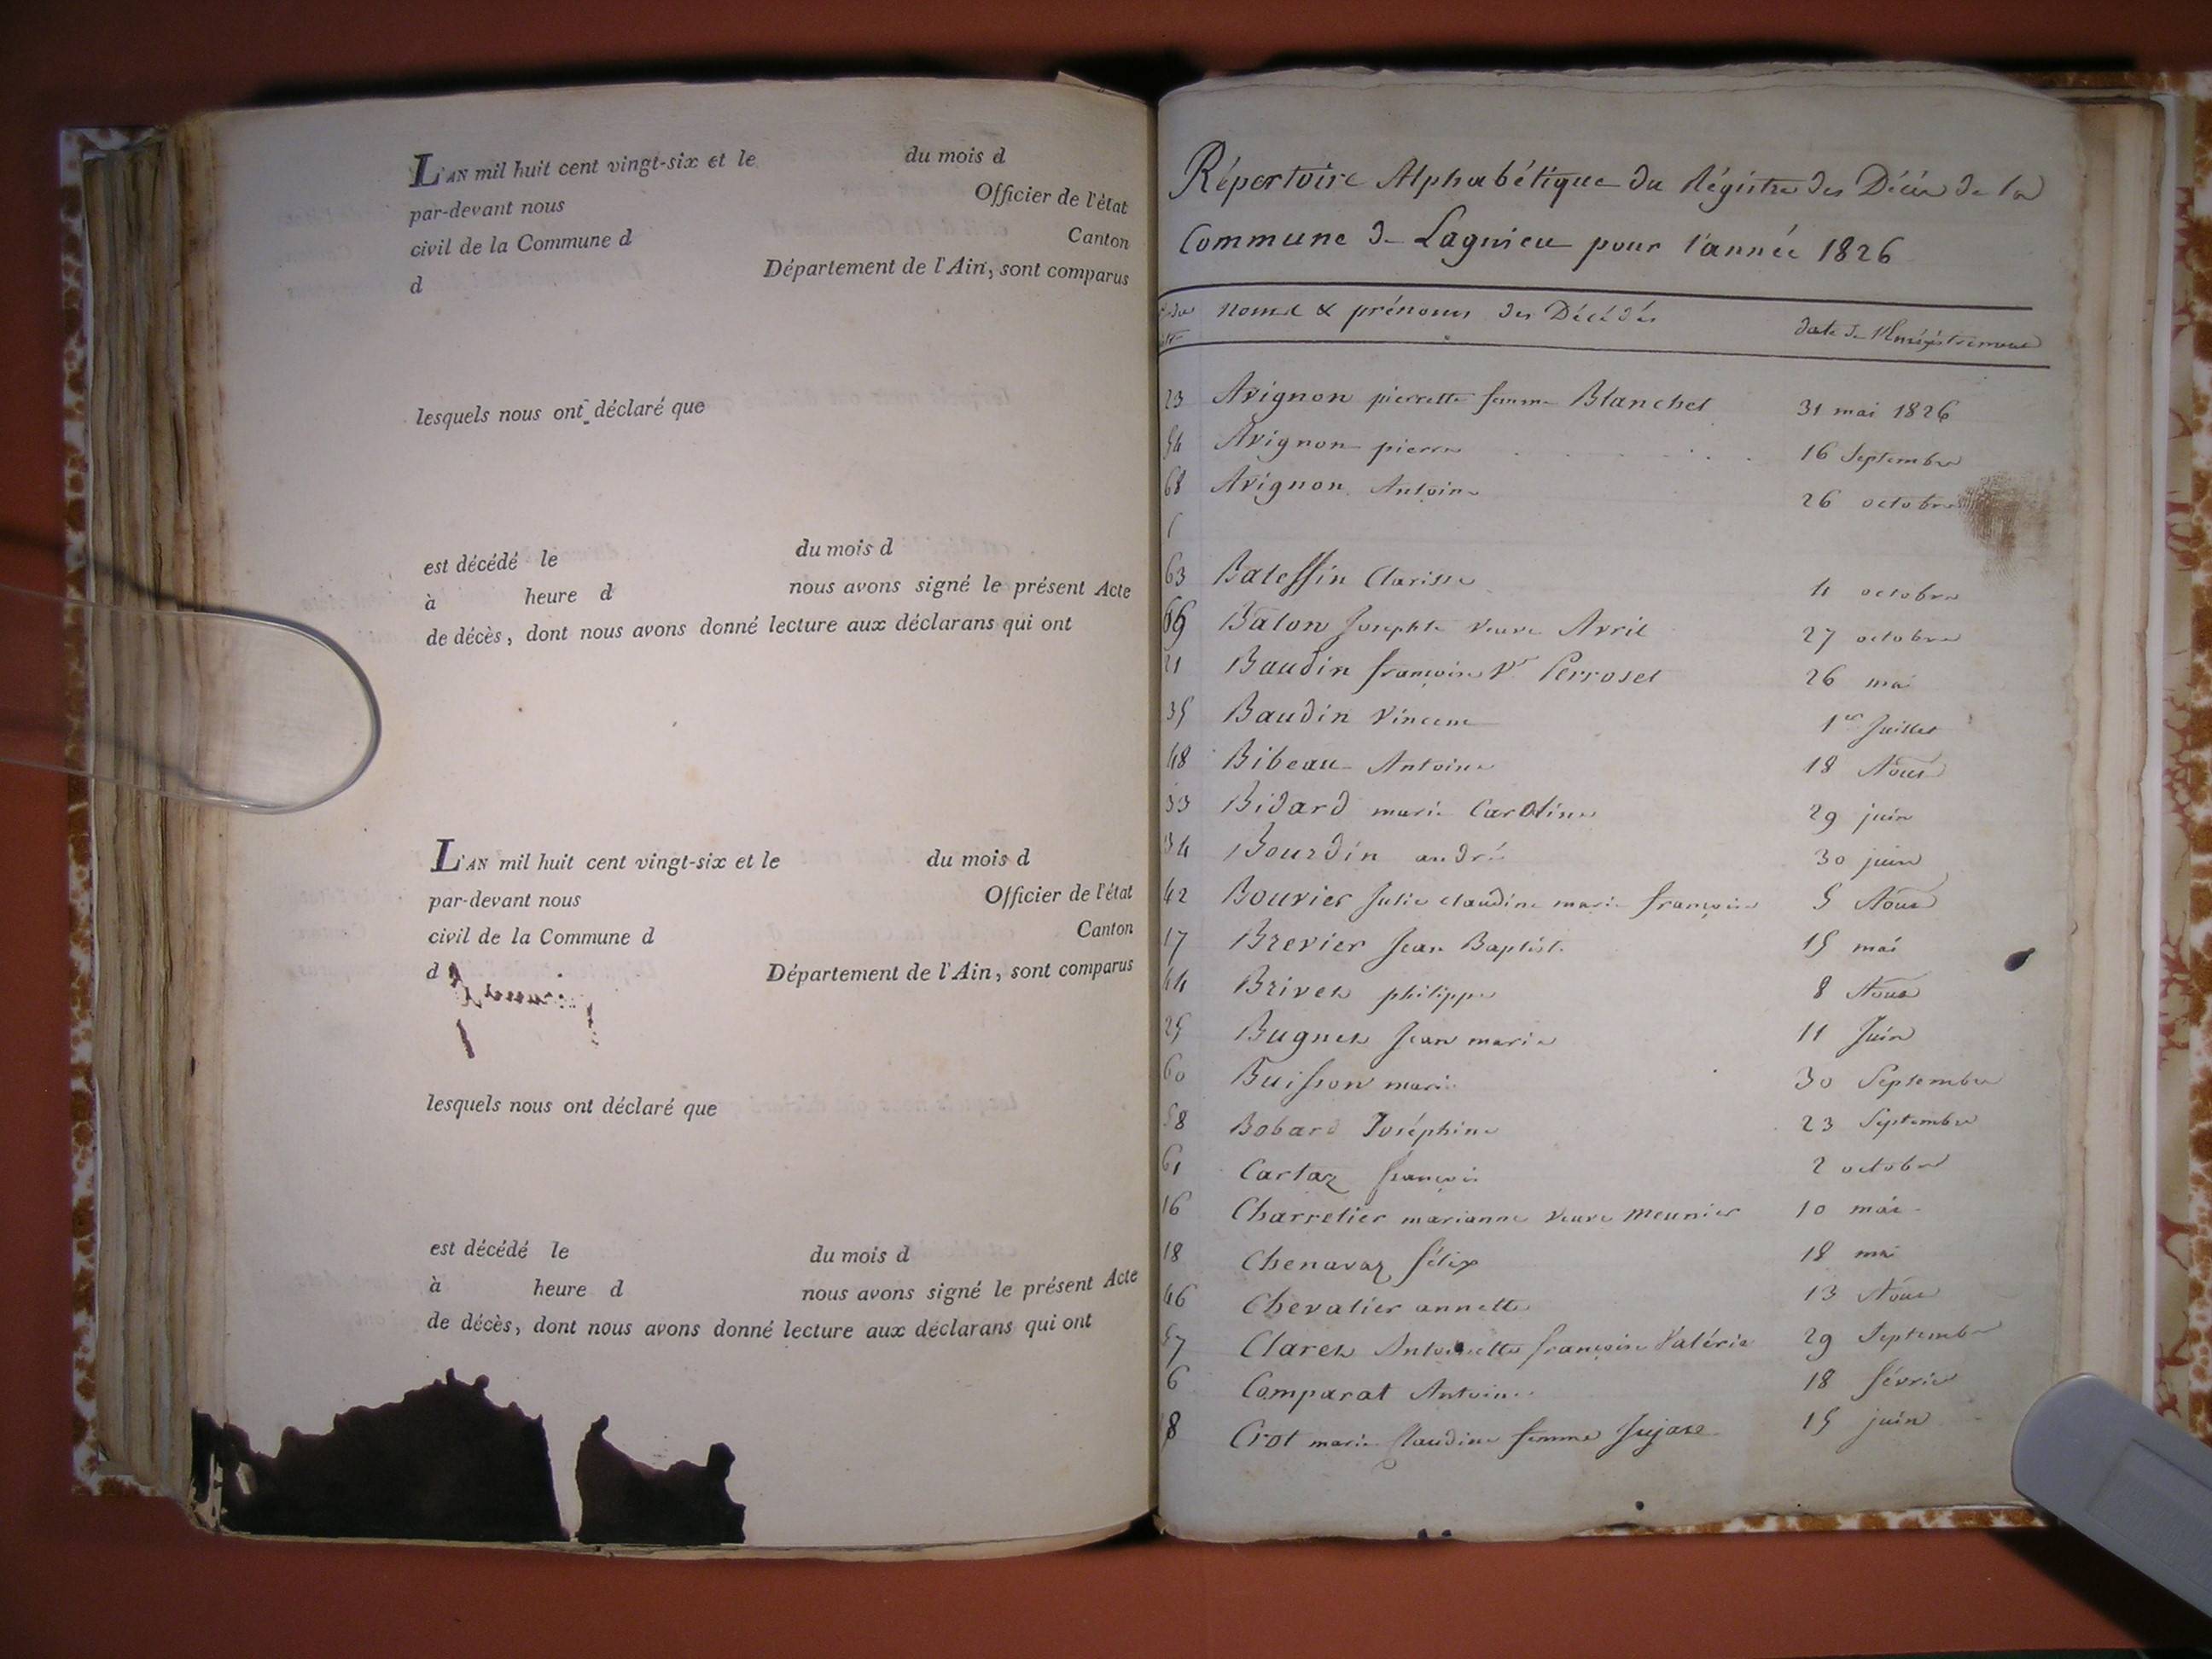 L'AN mil huit cent vingt-six et le du mois d
par-devant nous Officier de l'état
civil de la Commune d Canton
d Département de l'Ain, sont comparus
lesquels nous ont déclaré que
est décédé le du mois d
à heure d nous avons signé le présent Acte
de décès, dont nous avons donné lecture aux déclarans qui ont
L'AN mil huit cent vingt-six et le du mois d
par-devant nous Officier de l'état
civil de la Commune d Canton
d Département de l'Ain, sont comparus
lesquels nous ont déclaré que
est décédé le du mois d
à heure d nous avons signé le présent Acte
de décès, dont nous avons donné lecture aux déclarans qui ont
Répertoire Alphabétique du Régistre des Décès de la
Commune de Lagnieu pour l'année 1826
noms & prénoms des Décédés date de l'Enrégistrement
23 Avignon pierrette femme Blanchet 31 mai 1826
54 Avignon pierre 16 Septembre
68 Avignon Antoine 26 octobre
63 Balessin Clarisse 11 octobre
69 Balon Josephte veuve Avril 27 octobre
21 Baudin françoise Ve Perroset 26 mai
35 Baudin Vincent 1er Juillet
48 Bibeau Antoine 18 Aout
33 Bidard marie Caroline 29 juin
34 Bourdin andré 30 juin
42 Bouvier Julie claudine marie françoise 5 Aout
17 Brevier Jean Baptiste 15 mai
44 Brivet philippe 8 Aout
25 Bugnet Jean marie 11 Juin
60 Buisson marie 30 Septembre
58 Bobard Joséphine 23 Septembre
61 Cartaz françois 2 octobre
16 Charretier marianne veuve meunier 10 mai
18 Chenavaz félix 18 mai
46 Chevalier annette 13 Aout
57 Claret Antoinette françoise Valérie 29 Septembre
6 Comparat Antoine 18 février
8 Crot marie Claudine femme Jujat 15 juin